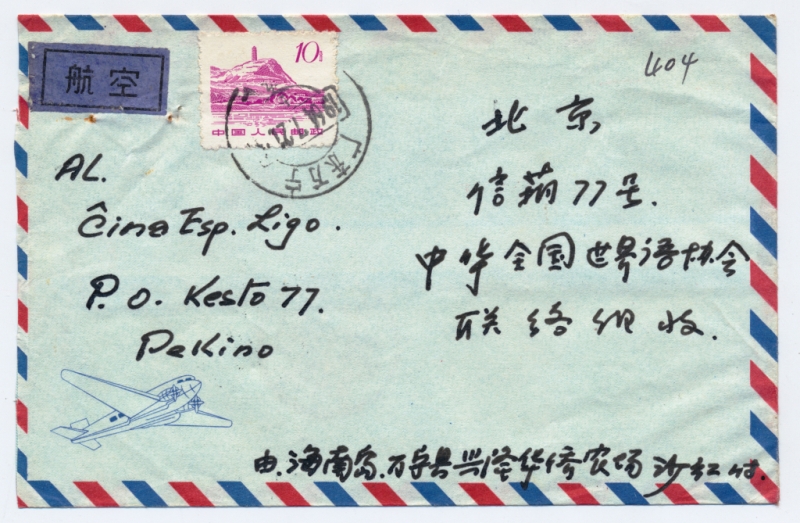 航空
10分
中国人民邮政
广东万宁
404
AL.
Ĉina Esp. Ligo.
P. O. Kesto 77.
Pekino
北京
信箱77号.
中华全国世界语协会
联络组收.
由.海南岛.万宁县兴隆华侨农场 沙红付.